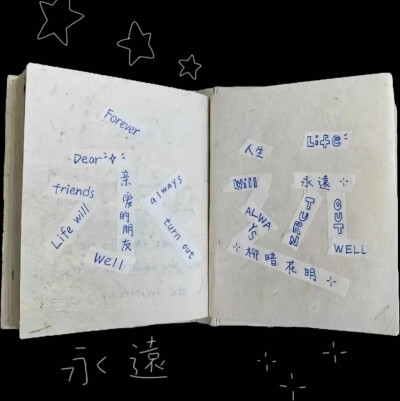 Forever
Dear
亲爱的朋友
friends
always
Life will
turn out
Well
人生
Life
Will
永遠
ALWAYS
TURN
OUT
WELL
柳暗花明
永遠